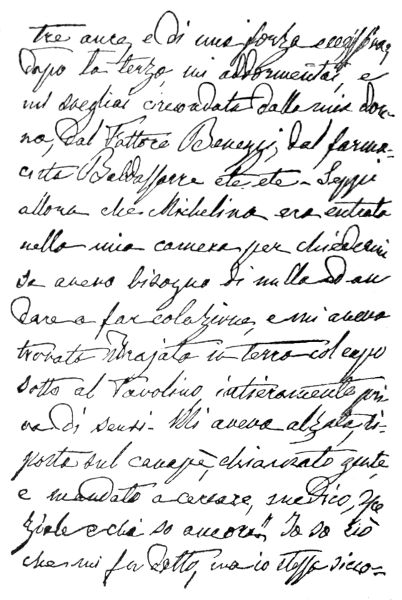 tre ance, e di una forza
dopo la terza mi addormentai, e
mi svegliai circondata dalla mia don-
na, dal Fattore Benezzi, dal farma-
cista Baldassarre etc etc - Seppi
allora che Michelina era entrata
nella mia camera per chiedermi
se avevo bisogno di nulla ed an
dare a far colazione, e mi aveva
trovata sdrajata in terra col capo
sotto al Tavolino, intieramente pri
va di sensi - Mi aveva alzata, ri-
posta sul canapè, chiamato gente
e mandato a cercare, medico, spe
ziale e chi so ancora!! Io so ciò
che mi fu detto, ma io stessa sicco-